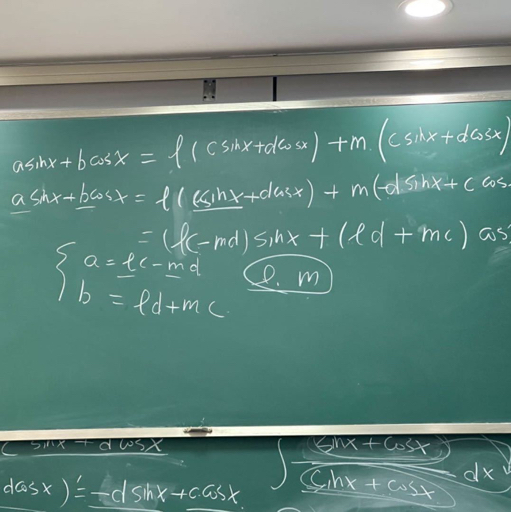 a sinx + b cosx = l (c sinx + d cosx) + m (c sinx + d cosx)
a sinx + b cosx = l (c sinx + d cosx) + m (-d sinx + c cos
= (lc - md) sinx + (ld + mc) cos
a = lc - md
l. m
b = ld + mc
c sinx + d cosx
d cosx)' = -d sinx + c cosx
∫ sinx + cosx / sinx + cosx dx